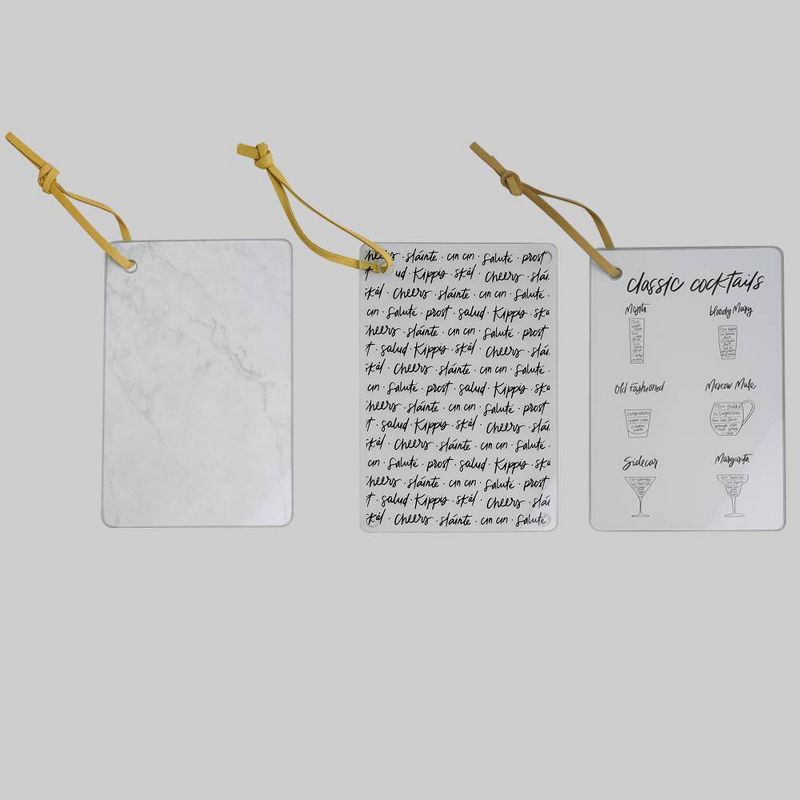 hee · sláinte · cin cin · Salute · prost
ud · Kippis · skál · Cheers · slái
kál · Cheers · sláinte · cin cin · Salute ·
cin · Salute · prost · salud · Kippis · ska
heers · sláinte · cin cin · Salute · prost
t · salud · Kippis · skál · Cheers · slái
kál · Cheers · sláinte · cin cin · Salute ·
cin · Salute · prost · salud · Kippis · ska
heers · sláinte · cin cin · Salute · prost
t · salud · Kippis · skál · Cheers · slái
kál · Cheers · sláinte · cin cin · Salute ·
cin · Salute · prost · salud · Kippis · ska
heers · sláinte · cin cin · Salute · prost
t · salud · Kippis · skál · Cheers · slái
kál · Cheers · sláinte · cin cin · Salute
classic cocktails
Mojito bloody Mary
Old Fashioned Moscow Mule
Sidecar Margarita